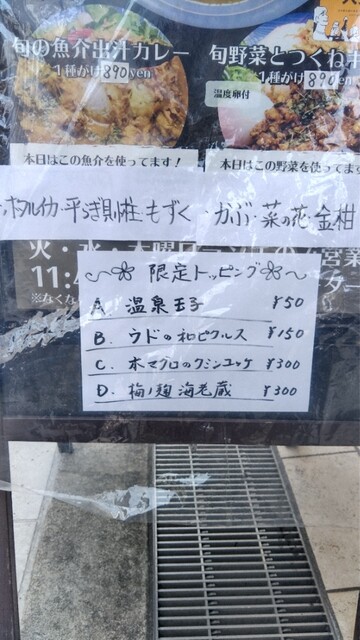 旬の魚介出汁カレー
1種がけ890yen
旬野菜とつくね
1種がけ890
温度卵付
本日はこの魚介を使ってます!
本日はこの野菜を使ってます
ホタルイカ・平らぎ貝柱・もずく
・かぶ・菜の花・金柑
火・水・木曜日
営業
11:
※なくな
限定トッピング
A. 温泉玉子 ¥50
B. ウドの和ピクルス ¥150
C. 本マグロのクミンユッケ ¥300
D. 梅ノ麹海老蔵 ¥300